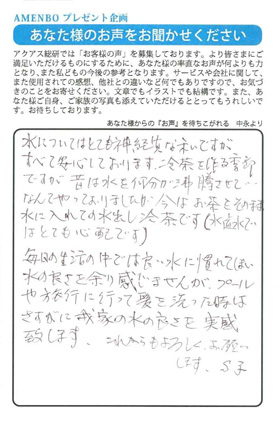 AMENBO プレゼント企画
あなた様のお声をお聞かせください
アクアス総研では「お客様の声」を募集しております。より皆さまにご
満足いただけるものにするために、あなた様の率直なお声が何よりも力
となり、また私どもの今後の参考となります。サービスや会社に関して、
また使用されての感想、他社との違いなど何でもありですので、お気づ
きのことをお寄せください。文章でもイラストでも結構です。また、あ
なた様ご自身、ご家族の写真も添えていただけるととってもうれしいで
す。お待ちしております。
あなた様からの『お声』を待ちこがれる 中永より
水についてはとても神経質な私ですが
すべて安心しております。冷茶を作る季節
ですが 昔は水を何分か沸騰させて…
なんてやっておりましたが今は お茶とそのまま
水に入れての水出し冷茶です(水道水で
はとても心配です)
毎日の生活の中では良い水に慣れてしまい
水の良さを余り感じませんが、プール
や旅行に行って髪を洗った時は
さすがに我家の水の良さを 実感
致します。これからもよろしくお願い
します。S子